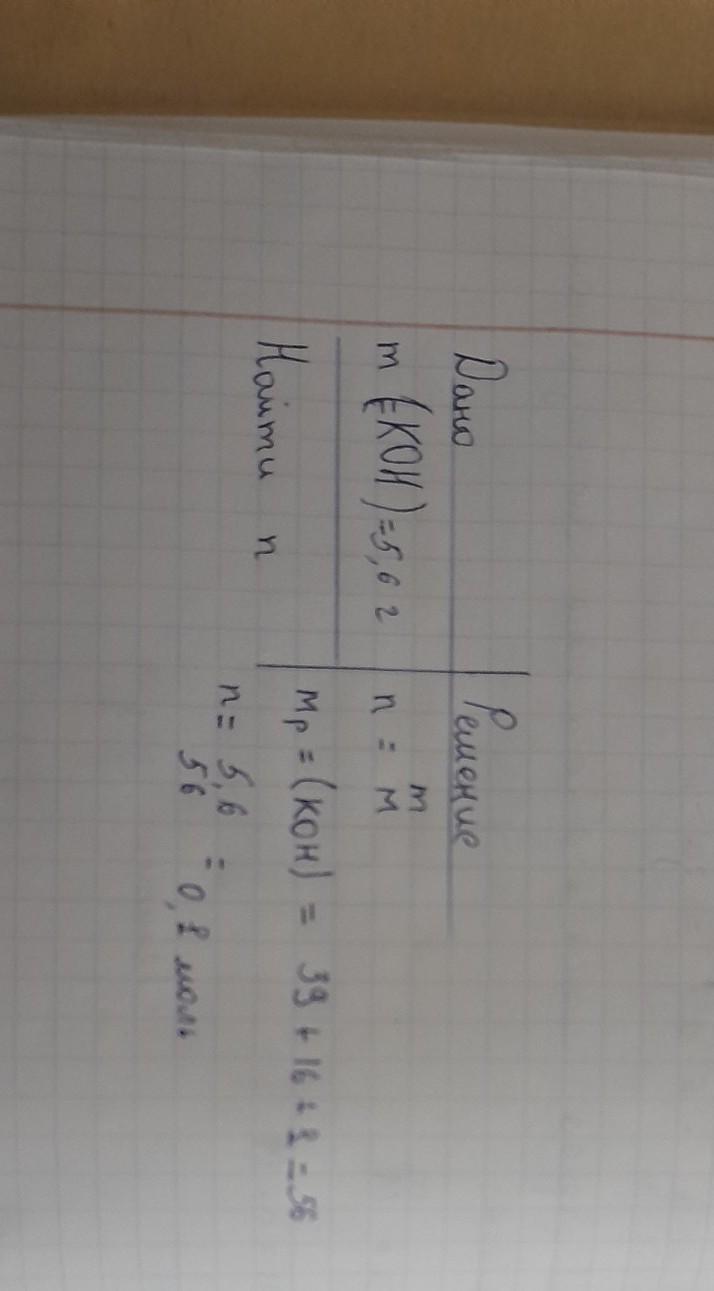 Дано
Решение
m (KOH) = 5,6 г
n = m
M
Найти n
Mр = (KOH) = 39 + 16 + 1 = 56
n = 5,6
56 = 0,1 моль